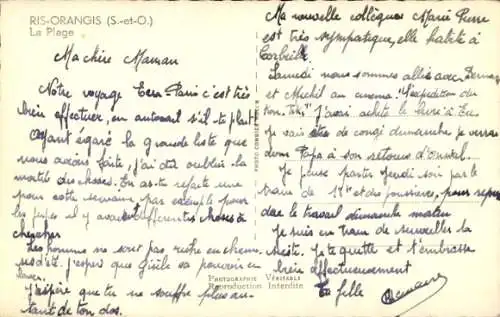 RIS-ORANGIS (S.-et-O.)
La Plage
Ma chère Maman
Notre voyage Evra Paris c'est très
bien effectuer, en autorail s'il te plaît
Ayant égaré la grande liste que
nous avions faite, j'ai dû oublier la
moitié des choses. En as refaite une
pour cette semaine par exemple pour
les jupes il y avait différentes choses à
chercher
Les hommes ne sont pas riche en chemi
ses d'été. J'espère que Gisèle va pouvoir en
J'espère que tu ne souffre plus au
tant de ton dos.
PHOTO COMBIER MACON
Photographie Véritable
Reproduction Interdite
Ma nouvelle collègue Marie Pierre
est très sympathique, elle habite à
Corbeille
Samedi nous sommes allés avec
et Michel au cinéma "l'expédition du
ton, Tiki" J'avais acheté le livre à
Je suis de congé dimanche je verrai
donc Papa à son retour
Je pense partir jeudi soir par le
train de 17h et des poussières, pour repren
dre le travail dimanche matin
Je suis en train de surveiller la
sieste. Je te quitte et t'embrasse
bien affectueusement
Ta fille